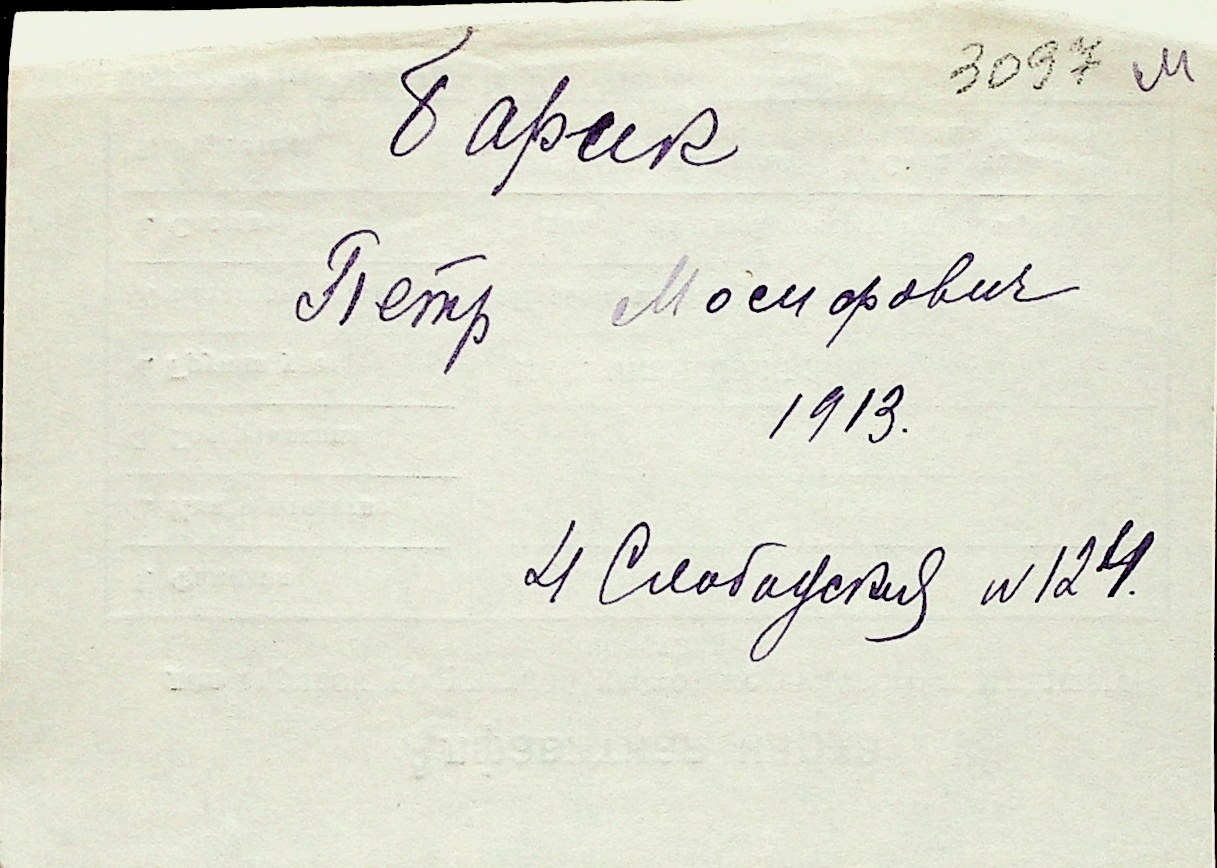 3097 м
Барик
Петр Мосифович
1913.
4 Слободская N 124.